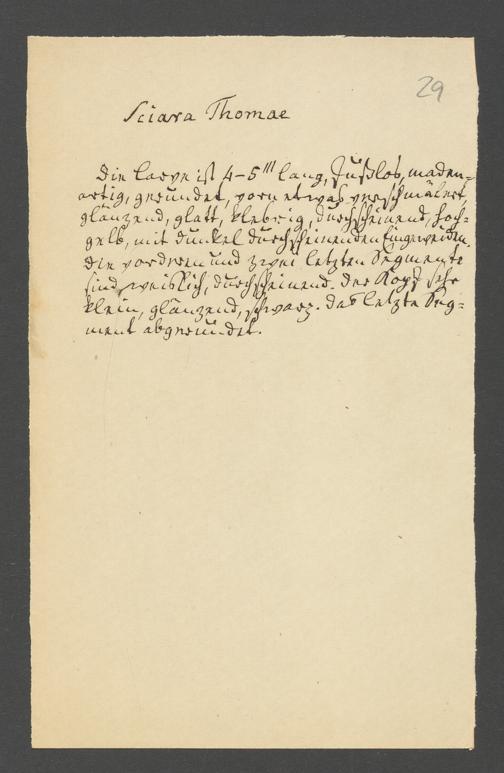 29
Sciara Thomae
Die Larve ist 4–5''' lang, fußlos, maden=
artig, gerundet, vorn etwas verschmälert,
glänzend, glatt, klebrig, durchscheinend, hoch=
gelb, mit dunkel durchscheinenden Eingeweiden.
Die vorderen und zwei letzten Segmente
sind weißlich, durchscheinend. Der Kopf sehr
klein, glänzend, schwarz. Das letzte Seg=
ment abgerundet.